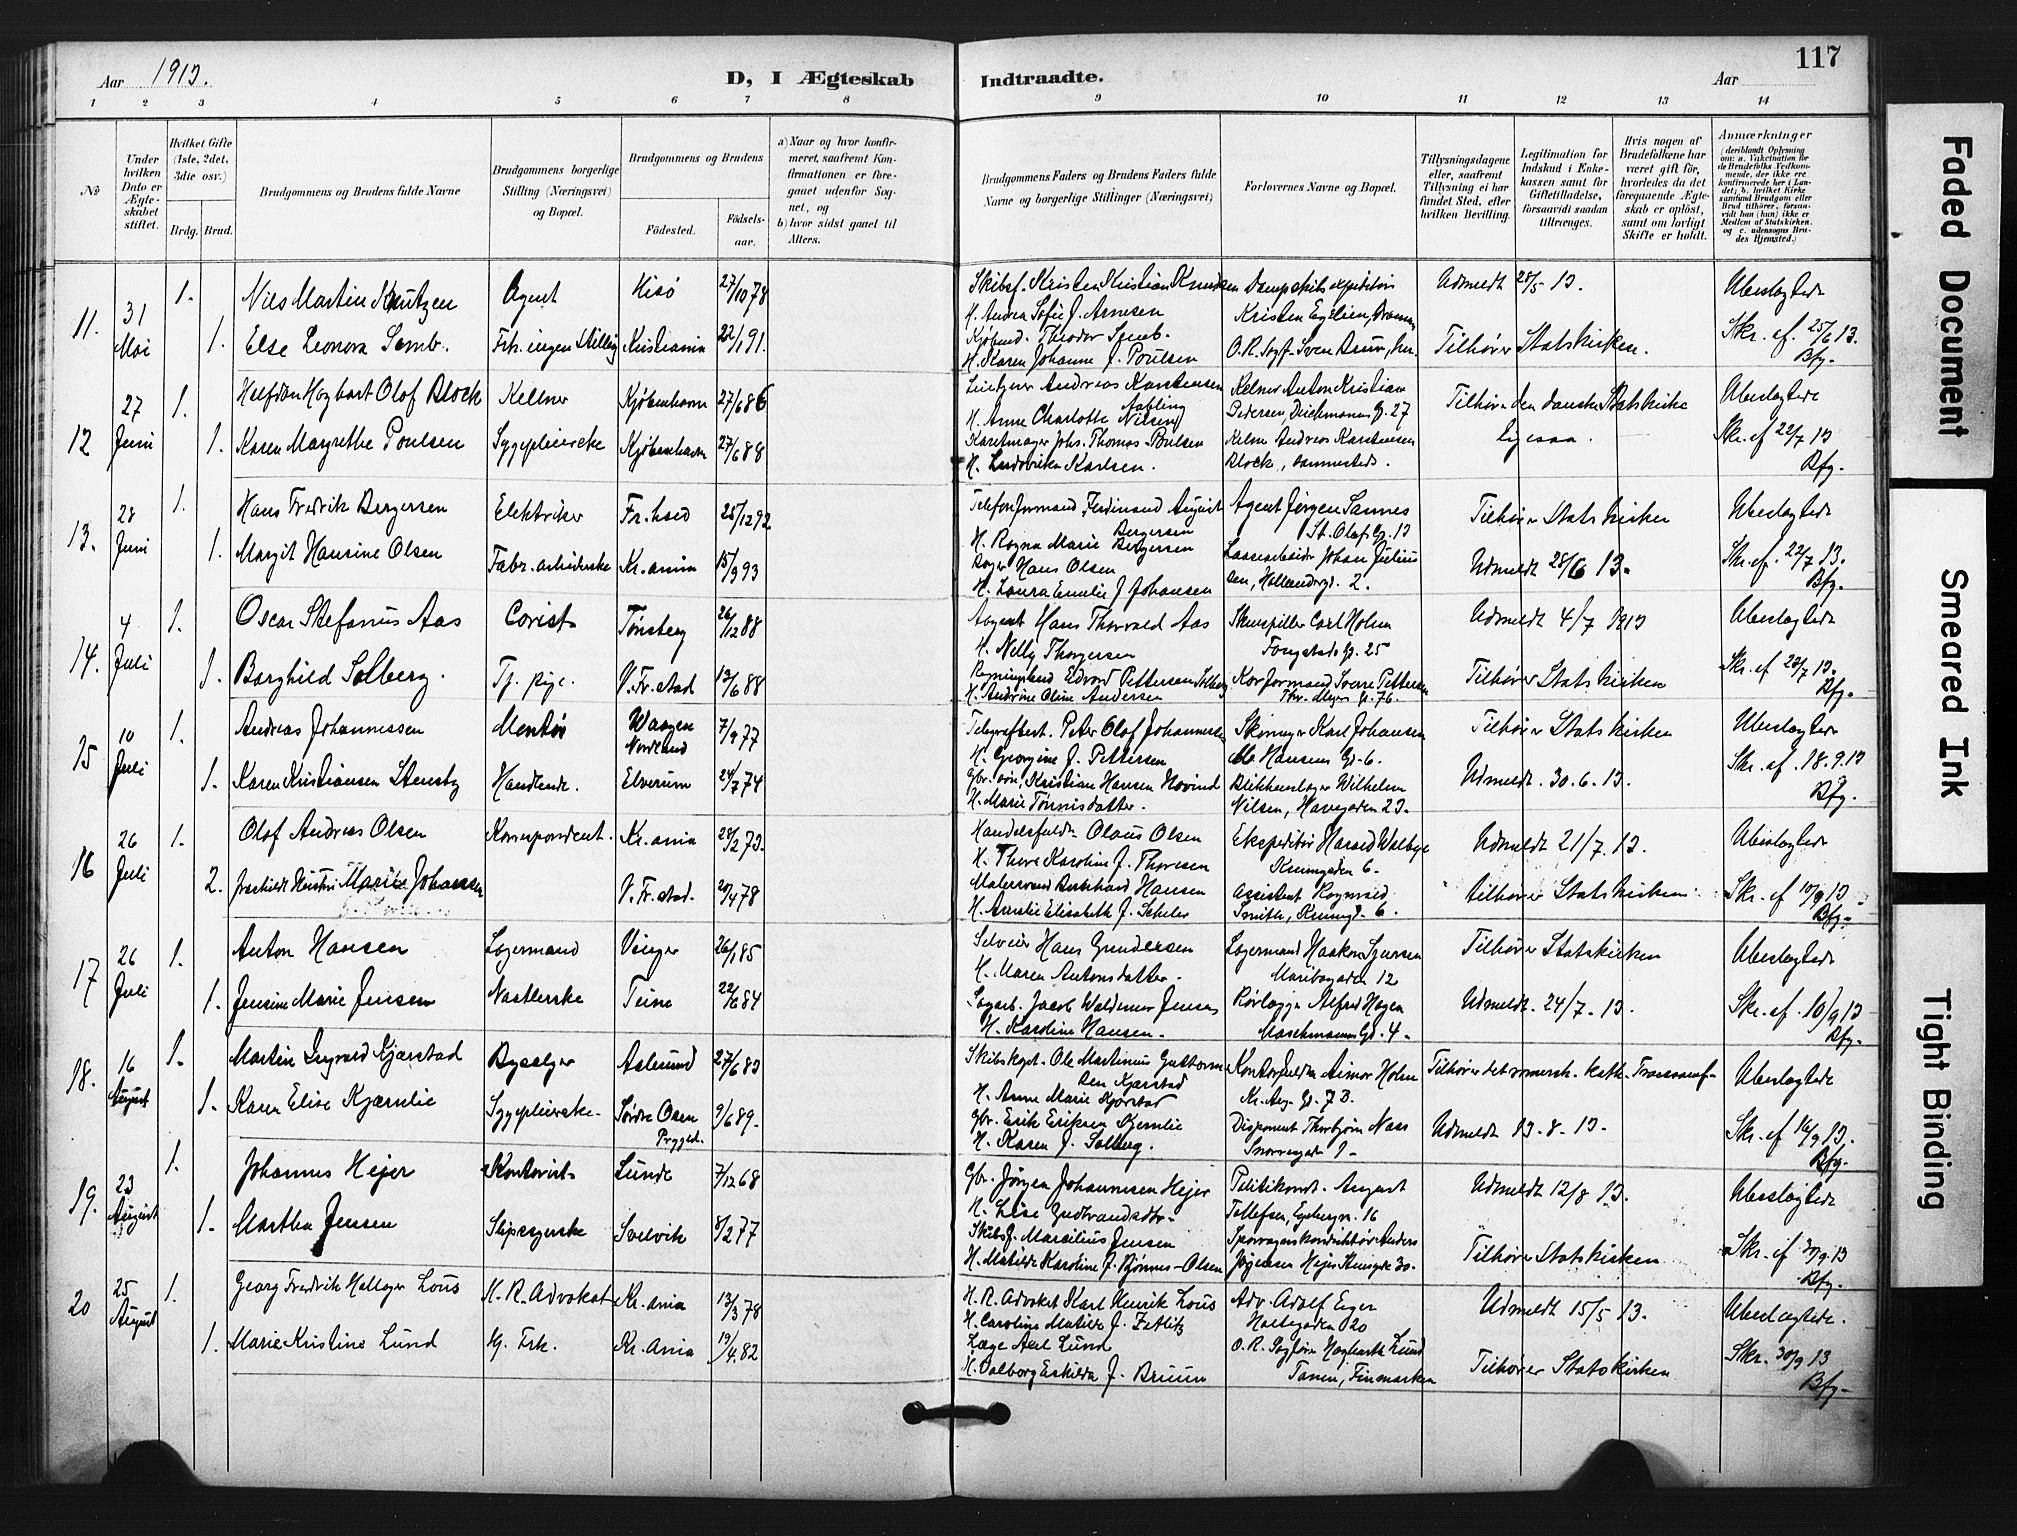 117
Aar 1913.
D, I Ægteskab Indtraadte.
Aar
1 2 3 4 5 6 7 8 9 10 11 12 13 14
No
Under hvilken Dato er Ægteskabet stiftet.
Hvilket Gifte (1ste, 2det, 3die osv.)
Brdg. Brud.
Brudgommens og Brudens fulde Navne
Brudgommens borgerlige Stilling (Næringsvei) og Bopæl.
Brudgommens og Brudens
Fødested.
Fødselsaar.
a) Naar og hvor konfirmeret, saafremt Konfirmationen er foregaaet udenfor Sognet, og
b) hvor sidst gaaet til Alters.
Brudgommens Faders og Brudens Faders fulde Navne og borgerlige Stillinger (Næringsvei)
Forlovernes Navne og Bopæl.
Tillysningsdagene eller, saafremt Tillysning ei har fundet Sted, efter hvilken Bevilling.
Legitimation for Indskud i Enkekassen samt for Giftetilladelse, forsaavidt saadan tiltrænges.
Hvis nogen af Brudefolkene har været gift før, hvorledes da det foregaaende Ægteskab er opløst, samt om lovligt Skifte er holdt.
Anmærkninger (deriblandt Oplysning om: a. Vakcination for de Brudefolks Vedkommende, der ikke ere konfirmerede her i Landet; b. hvilket Kirkesamfund Brudgom eller Brud tilhører, forsaavidt han (hun) ikke er Medlem af Statskirken, og c. udensogns Brudes Hjemsted.)
11. 31 Mai 1. Nils Martin Knutzen Agent Hisö 27/10 78
Skibsf. Kristen Kristian Knudsen Dampskibsexpeditör Udmeldt 28/5 13. Ubeslægtede
H. Andrea Sofie f. Arnesen Kristen Egelien, Drammen
1. Else Leonora Somb. Frk. ingen Stilling Kristiania 22/1 91.
Kjøbmd. Theodor Somb. O.R. Sagf. Sven Bruv, her. Tilhører Statskirken. Skr. af. 25/6 13.
H. Karen Johanne f. Poulsen Bfg.
12 27 Juni 1. Halfdan Hagbart Olof Block Kellner Kjøbenhavn 27/6 86
Andreas Karstensen Kelner Anton Kristian Tilhører den danske Statskirke Ubeslægtede
H. Anne Charlotte Nilsen Pedersen, Deichmans G. 27
1. Karen Margrethe Poulsen Sygepleierske Kjøbenhavn 27/6 88
Karetmager Johs. Thomas Poulsen Kelner Andreas Karstensen ligesaa. Skr. af 22/7 13
H. Ludovicka Karlsen. Block, sammesteds. Bfg.
13. 28 Juni 1. Hans Fredrik Bergersen Elektriker Fr.hald 25/12 92
Telefonformand Ferdinand August Bergersen Agent Jörgen Sannes Tilhører Statskirken Ubeslægtede
H. Ragna Marie Bergersen St. Olafs G. 13
1. Margit Hansine Olsen Fabr. arbeiderske Kr.ania 15/9 93
Bager Hans Olsen Johan Juliussen, 2. Udmeldt 28/6 13. Skr. af. 22/7 13.
H. Laura Emilie f. Johansen Bfg.
14. 4 Juli 1. Oscar Stefanus Aas Corist Tønsberg 26/12 88
Agent Hans Thorvald Aas Skuespiller Carl Holm Udmeldt 4/7 1913 Ubeslægtede
H. Nelly Thorgersen Fougstads G. 25
1. Borghild Solberg. Tj. pige. V. Fr.stad 12/6 88
Edvard Pettersen Solberg Korformand Sverre Pettersen Tilhører Statskirken Skr. af 22/7 13.
H. Andrine Oline Andersen Thv. Meyers G. 76. Bfg.
15 10 Juli 1. Andreas Johannessen Montör Vaagen Nordland 7/9 77
Telegrafbest. Peter Olof Johannessen Skomager Karl Johansen Tilhører Statskirken Ubeslægtede
H. Georgine f. Pettersen Hansens G. 6.
1. Karen Kristiansen Stensby Handlende. Elverum 24/7 74
Gbr. Kristian Hansen Hovind Blikkenslager Wilhelm Udmeldt. 30.6.13. Skr. af. 18.9.13
H. Marie Tönnisdatter. Nilsen, Havegaden 23. Bfg.
16 26 Juli 1. Olof Andreas Olsen Korrespondent. Kr.ania 28/2 73.
Handelsfuldm. Olaus Olsen Ekspeditör Harald Walbye Udmeldt 21/7. 13. Ubeslægtede
H. Thora Karoline f. Thoresen 6.
2. fraskildt Hustru Marie Johansen V. Fr.stad. 20/4 78
Hansen Assistent Ragnvald tilhører Statskirken Skr. af 10/9 13.
H. Amalie Elisabeth f. Scheler Smith, 6. Bfg.
17 26 Juli 1. Anton Hansen Lagermand Vinger 26/1 85
Selveier Hans Gundersen Lagermand Haakon Syversen Tilhører Statskirken Ubeslægtede
H. Maren Antonsdatter. Maribogaden 12
1. Jensine Marie Jensen Teine 22/6 84
Jacob Waldemar Jensen Rörlægger Alfred Hagen Udmeldt. 24/7. 13. Skr. af. 10/9 13
H. Karoline Hansen. Maschmanns G. 4. Bfg.
18. 16 August 1. Martin Ingvald Kjærstad Bysælger Aalesund 27/6 83
Ole Martinius Guttormsen Kjærstad Kontorfuldm. Aimar Holm Tilhører det romersk. kath. Trossamf. Ubeslægtede
H. Anne Marie Kjærstad Kr. Aug. G. 7 B.
1. Karen Elise Kjærnlie Sygepleierske. Søndre Osen Trysild. 9/6 89.
Gbr. Erik Eriksen Kjernlie Disponent Thorbjörn Næss Udmeldt 13.8.13. Skr. af 16/9 13.
H. Karen f. Solberg. Snorresgade 1. Bfg.
19. 23 August 1. Johannes Hejer Kontorist Lunde 7/12 68
Gbr. Jörgen Johannesen Hejer Politikonst. August Udmeldt 12/8 13. Ubeslægtede
H. Lise Gudbrandsdtr. Tollefsen, Egebergv. 16
1. Martha Jensen Slipssyerske Svelvik 8/2 77
Skibsf. Marcilius Jensen Sporvognskonduktör Anders Tilhører Statskirken Skr. af 30/9 13
H. Matilde Karoline f. Bjönnes-Olsen Jörgensen Hejer 30. Bfg.
20 25 August 1. Georg Fredrik Hallager Lous H. R. Advokat Kr.ania 13/3 78
H. R. Advokat Karl Henrik Lous Adv. Adolf Eger Udmeldt 15/5 13. Ubeslægtede.
H. Caroline Matilde f. Zetlitz Holtegaden 20
1. Marie Kristine Lund Hj. Frk. Kr.ania 19/4. 82
Læge Axel Lund O. R. Sagförer Hagbarth Lund Tilhører Statskirken Skr. 30/9 13
H. Valborg Eskilda f. Bruun Tanen, Finmarken Bfg.
Faded Document
Smeared Ink
Tight Binding